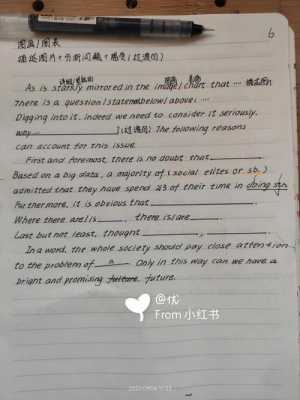 6
图画/图表
描述图片+分析问题+感受(过渡句)
图画 表格
As is starkly mirrored in the image/chart that … 描述图片
There is a question/statement below/above: …
Digging into it, indeed we need to consider it seriously.
way ](过渡句) The following reasons
can account for this issue.
First and foremost, there is no doubt that .
Based on a big data, a majority of (social elites or sb.)
admitted that they have spend 2/3 of their time in doing sth.
Furthermore, it is obvious that .
Where there are/is , there is/are .
Last but not least, thought , .
In a word, the whole society should pay close attention
to the problem of a . Only in this way can we have a
bright and promising future. future.
@优
From 小红书